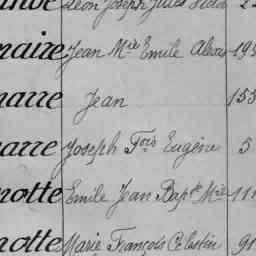 Léon Joseph Jules
maire Jean Mie Emile Alexis 195
narre Jean 155
narre Joseph Fois Eugène 5
notte Emile Jean Bapte Mie 111
notte Marie François Célestin 91